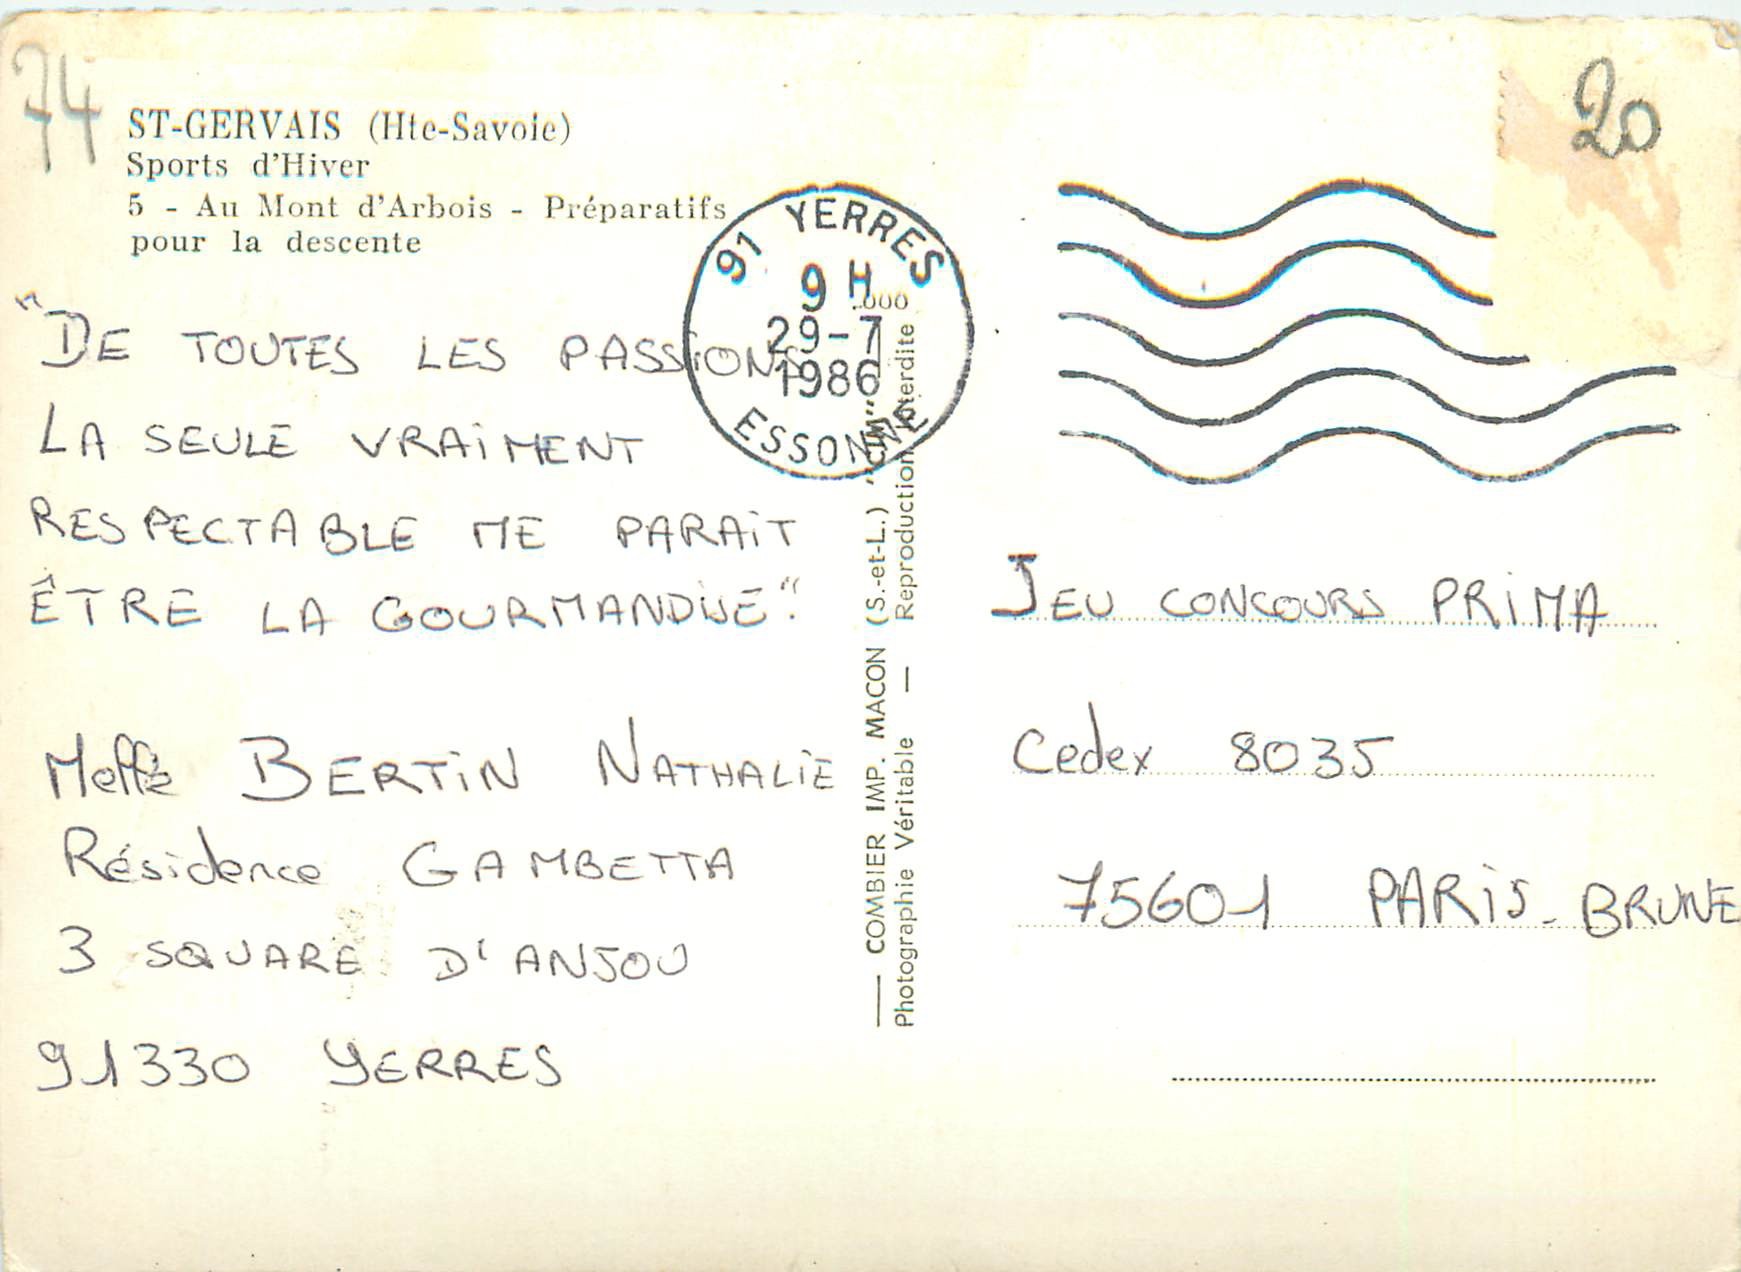 74
20
ST-GERVAIS (Hte-Savoie)
Sports d'Hiver
5 - Au Mont d'Arbois - Préparatifs
pour la descente
91 YERRES
9 H
29-7
1986
ESSONNE
"DE TOUTES LES PASSIONS
LA SEULE VRAIMENT
RESPECTABLE ME PARAIT
ÊTRE LA GOURMANDISE".
Melle BERTIN NATHALIE
Résidence GAMBETTA
3 SQUARE D'ANJOU
91330 YERRES
— COMBIER IMP. MACON (S.-et-L.) "CIM"
Photographie Véritable — Reproduction interdite
JEU CONCOURS PRIMA
Cedex 8035
75601 PARIS-BRUNE